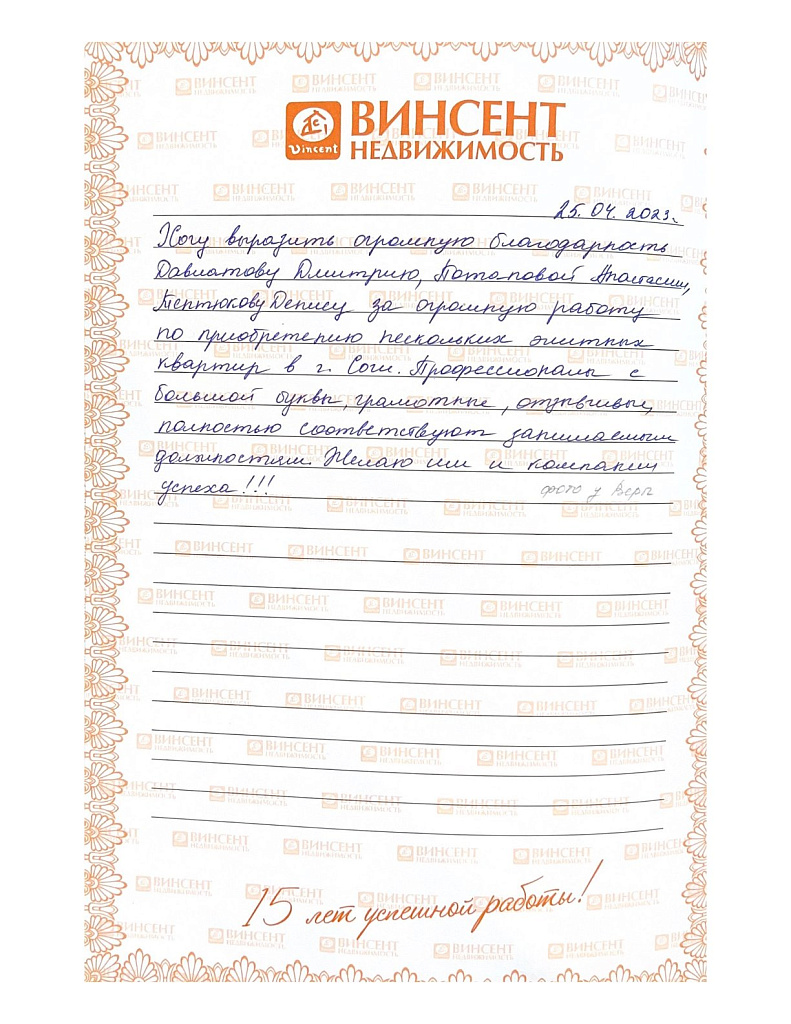 Vincent
ВИНСЕНТ
НЕДВИЖИМОСТЬ
25.04.2023г.
Хочу выразить огромную благодарность
Давлатову Дмитрию, Потаповой Анастасии,
Тептюкову Денису за огромную работу
по приобретению нескольких элитных
квартир в г. Сочи. Профессионалы с
большой буквы, грамотные, отзывчивые,
полностью соответствуют занимаемым
должностям. Желаю им и компании
успеха!!!
фото у Веры
15 лет успешной работы!